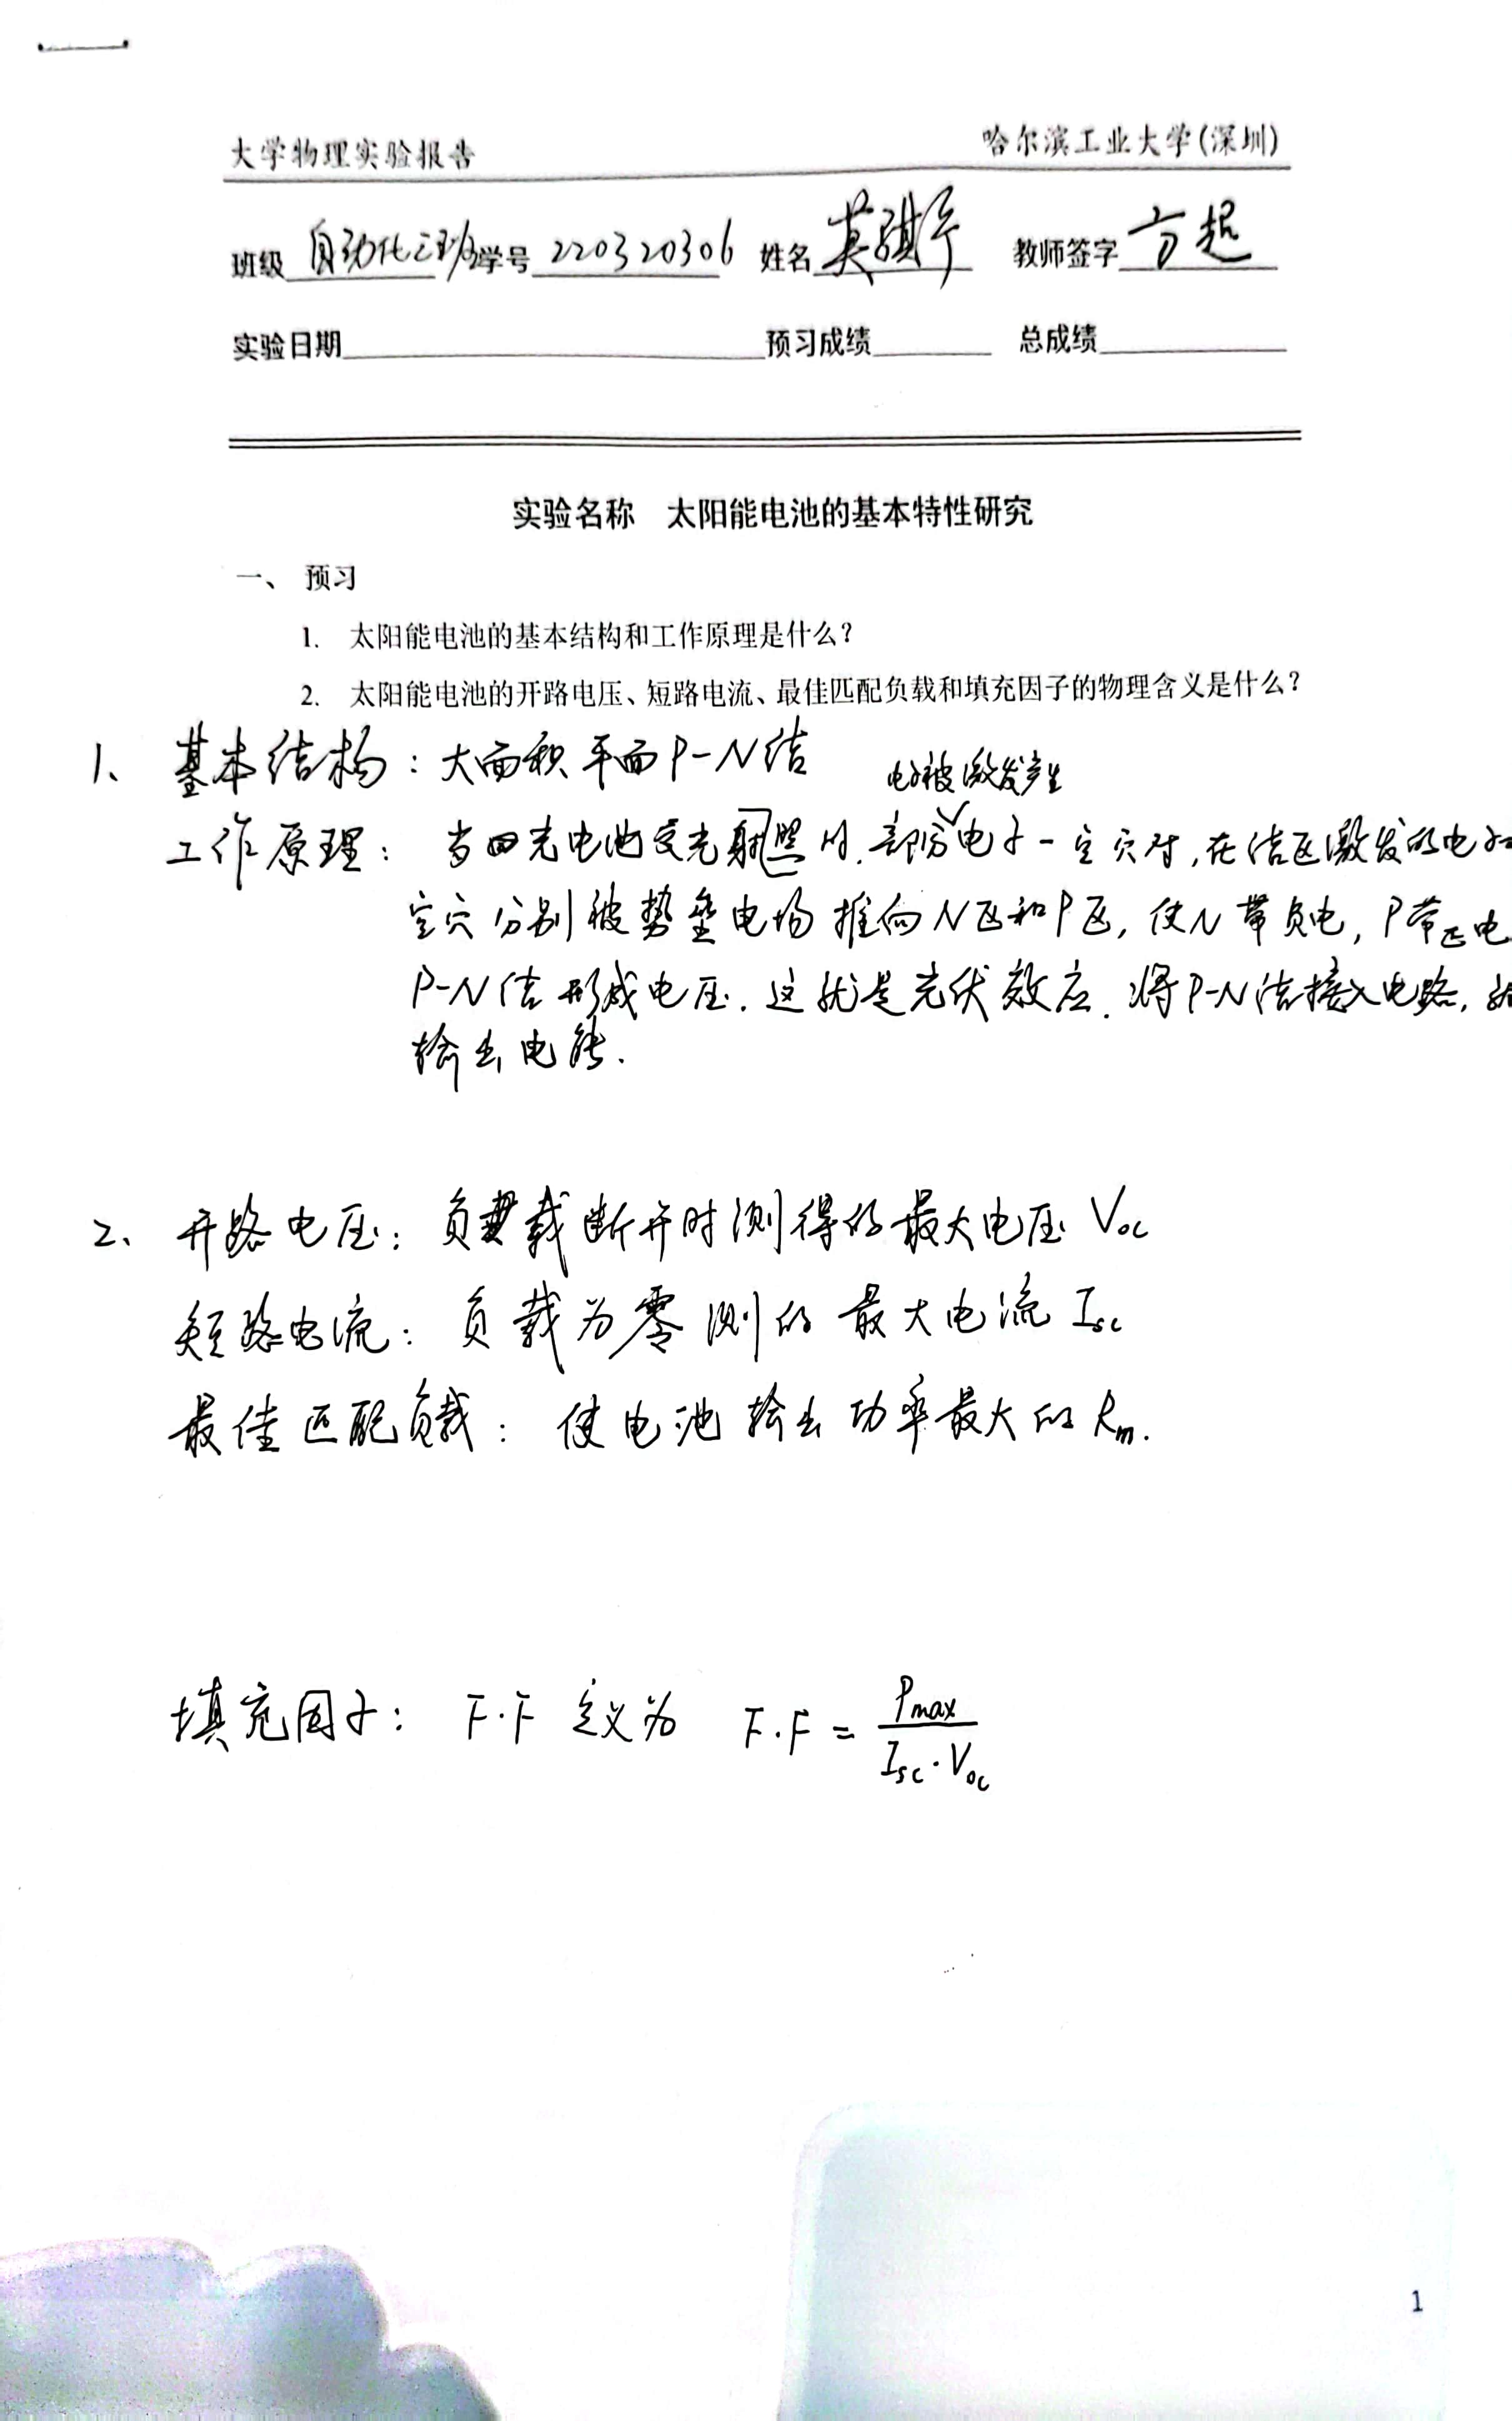 大学物理实验报告 哈尔滨工业大学(深圳)
班级 自动化三班 学号 220320306 姓名 莫骐 教师签字 方超
实验日期 预习成绩 总成绩
实验名称 太阳能电池的基本特性研究
一、 预习
1. 太阳能电池的基本结构和工作原理是什么?
2. 太阳能电池的开路电压、短路电流、最佳匹配负载和填充因子的物理含义是什么?
1、 基本结构:大面积平面P-N结
电子被激发产生
工作原理: 当光电池受光射照时,部分电子-空穴对,在结区激发的电子
空穴分别被势垒电场推向N区和P区,使N带负电,P带正电
P-N结形成电压.这就是光伏效应.将P-N结接入电路,
输出电能.
2、 开路电压:负载断开时测得的最大电压 Voc
短路电流:负载为零测的最大电流 Isc
最佳匹配负载:使电池输出功率最大的Rm.
填充因子: F·F 定义为 F·F = Pmax / Isc·Voc
1